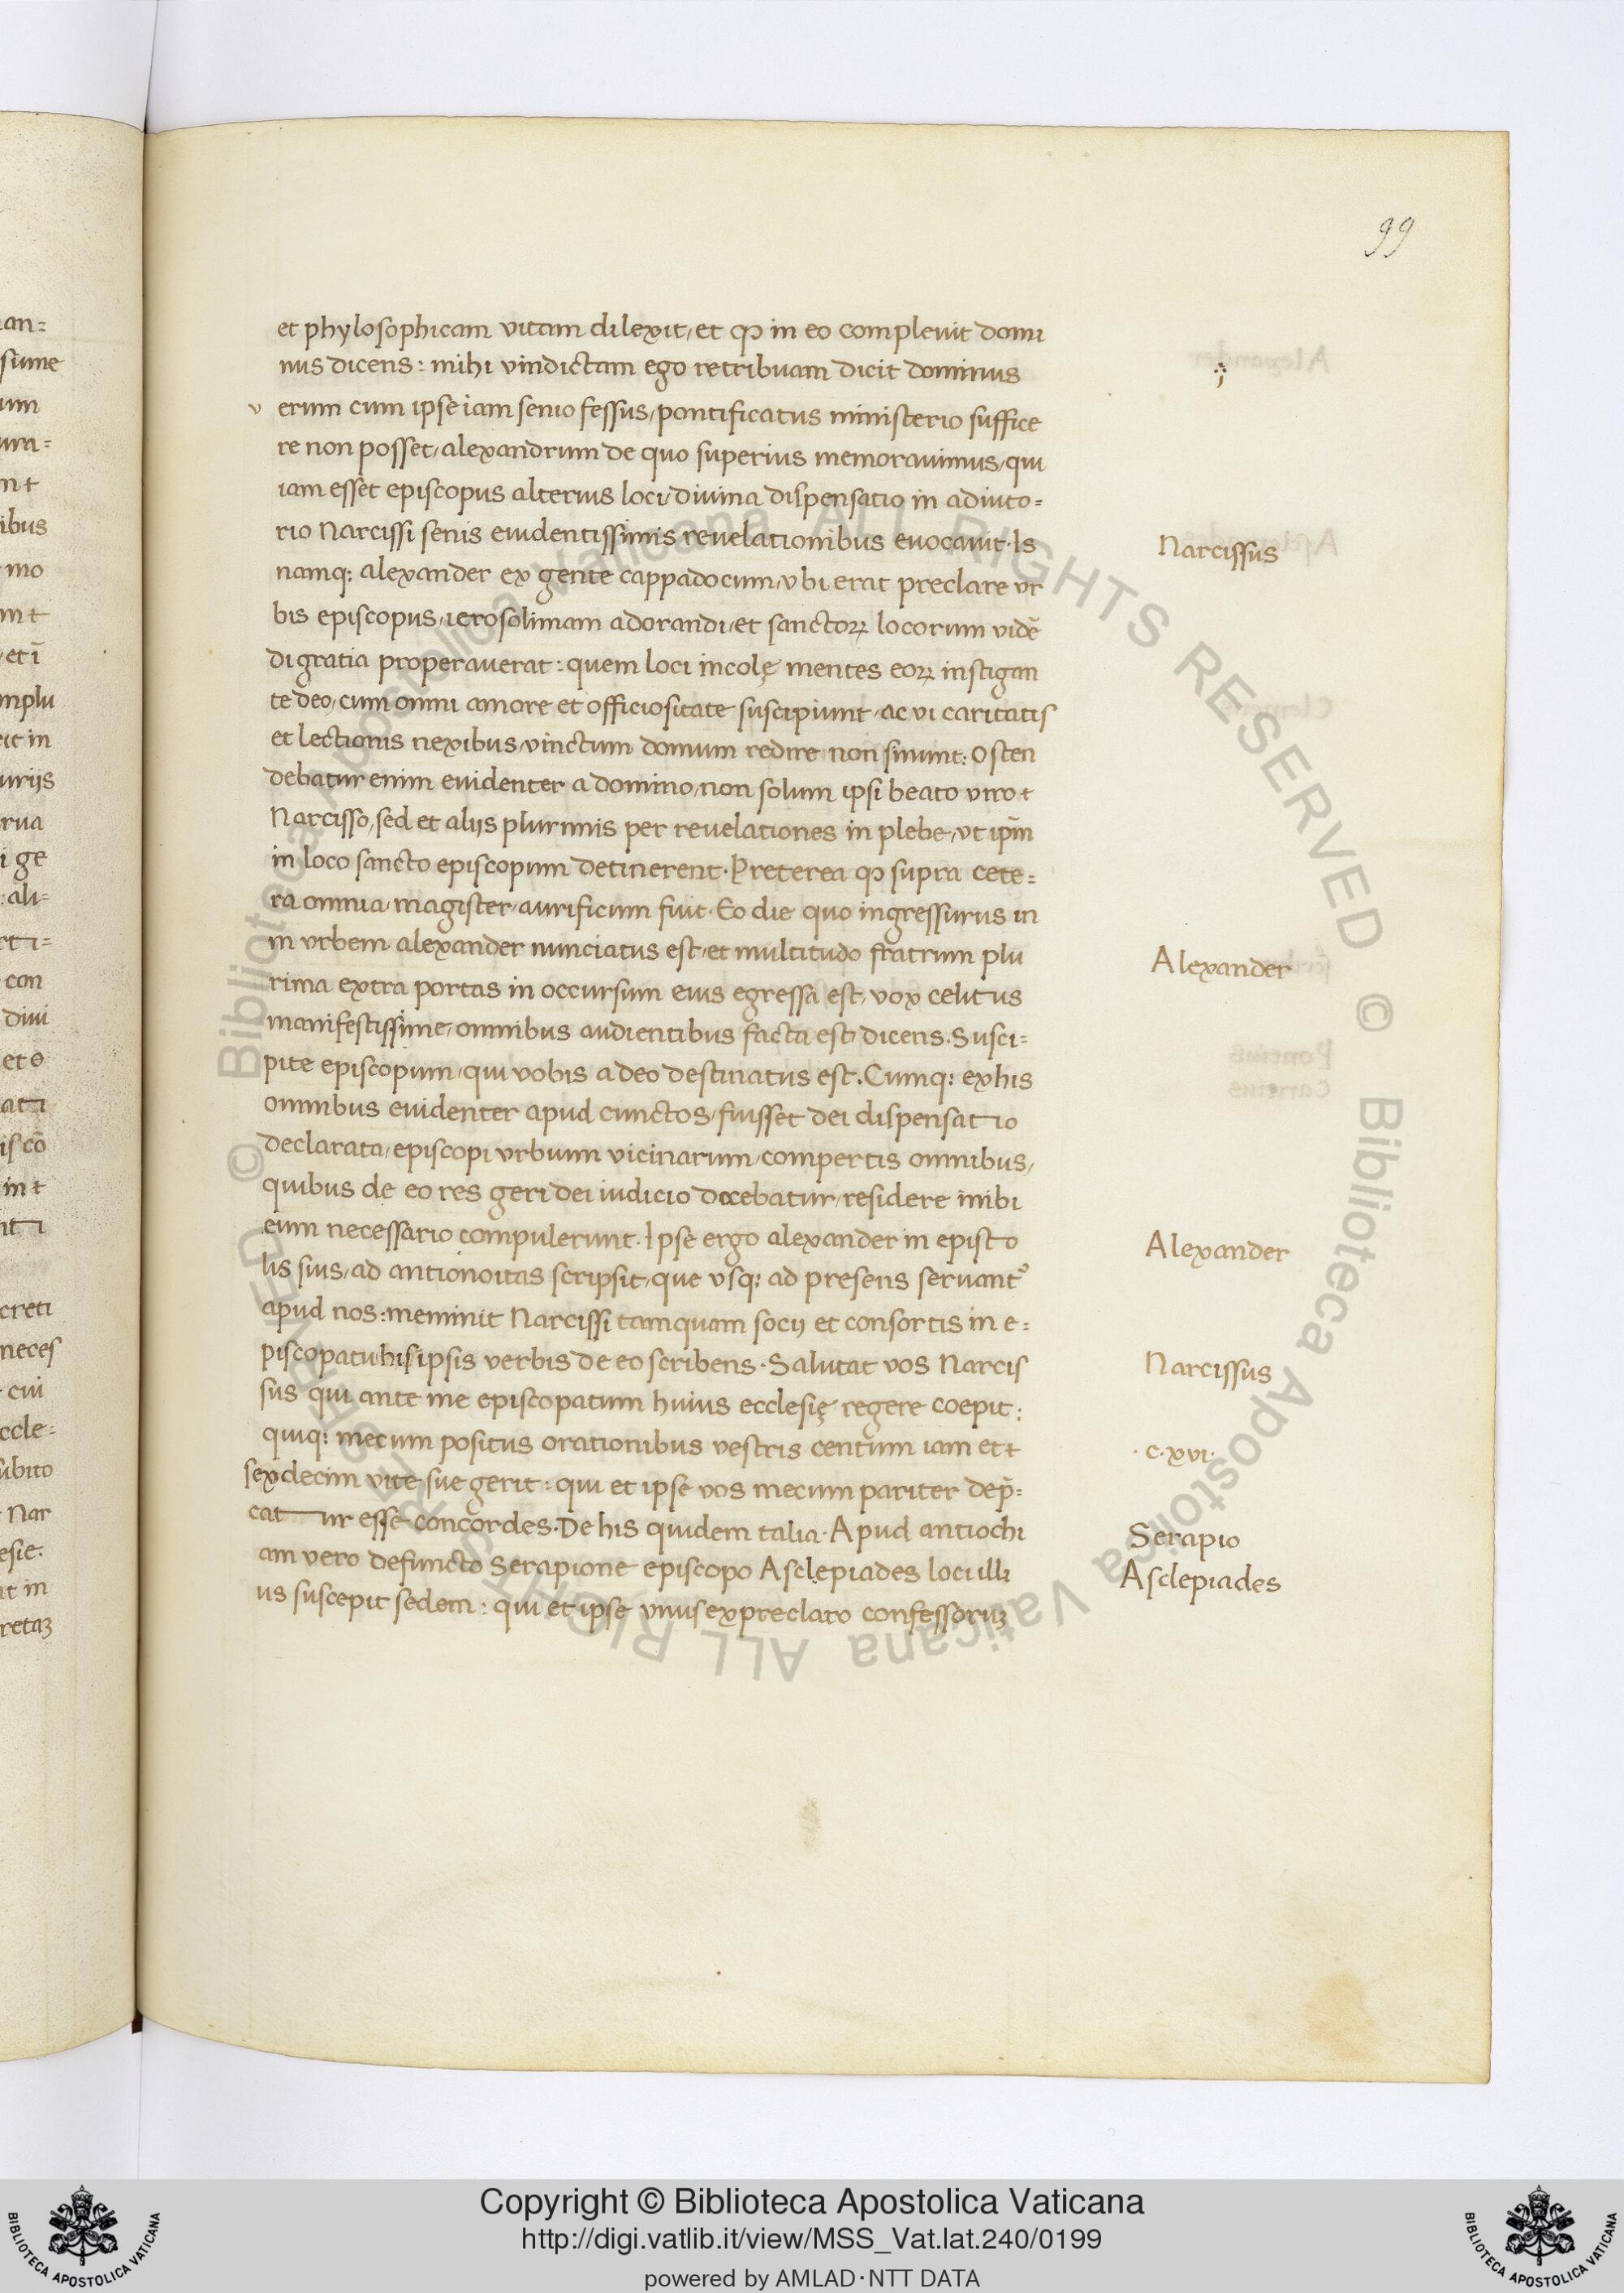 99
et phylosophicam vitam dilexit, et ꝙ in eo complevit domi
nus dicens: mihi vindictam ego retribuam dicit dominus
v erum cum ipse iam senio fessus, pontificatus ministerio suffice
re non posset, alexandrum de quo superius memoravimus, qui
iam esset episcopus alterius loci, divina dispensatio in adiuto=
rio Narcissi senis evidentissimis revelationibus evocavit. Is
Narcissus
namq: alexander ex gente cappadocum, ubi erat preclare ur
bis episcopus, ierosolimam adorandi, et sanctoꝝ locorum vidē
di gratia properaverat: quem loci incolę mentes eoꝝ instigan
te deo, cum omni amore et officiositate suscipiunt, ac vi caritatis
et lectionis nexibus, vinctum domum redire non sinunt: Osten
debatur enim evidenter a domino, non solum ipsi beato viro
Narcisso, sed et aliis plurimis per revelationes in plebe, ut ip̄m
in loco sancto episcopum detinerent. Preterea ꝙ supra cete=
ra omnia, magister, aurificum fuit. Eo die quo ingressurus in
in urbem alexander nunciatus est, et multitudo fratrum plu
Alexander
rima extra portas in occursum eius egressa est, vox celitus
manifestissime, omnibus audientibus facta est, dicens. Susci=
pite episcopum, qui vobis a deo destinatus est. Cumq: ex his
omnibus evidenter apud cunctos, fuisset dei dispensatio
declarata, episcopi urbium vicinarum, compertis omnibus,
quibus de eo res geri dei iudicio docebatur, residere inibi
eum necessario compulerunt. Ipse ergo alexander in episto
Alexander
lis suis, ad antionoitas scripsit, que usq: ad presens servantꝰ
apud nos: meminit Narcissi tamquam socij et consortis in e=
piscopatu his ipsis verbis de eo scribens. Salutat vos Narcis
Narcissus
sus qui ante me episcopatum huius ecclesię regere coepit:
quiq: mecum positus orationibus vestris centum iam et
·c·xvi·
sexdecim vite sue gerit: qui et ipse vos mecum pariter dep̄=
catur esse concordes. De his quidem talia. Apud antiochi
Serapio
am vero defuncto Serapione episcopo Asclepiades loci illi
Asclepiades
us suscepit sedem: qui et ipse unus ex preclaro confessoruꝫ
Copyright © Biblioteca Apostolica Vaticana
http://digi.vatlib.it/view/MSS_Vat.lat.240/0199
powered by AMLAD·NTT DATA
BIBLIOTECA APOSTOLICA VATICANA
BIBLIOTECA APOSTOLICA VATICANA
© Biblioteca Apostolica Vaticana ALL RIGHTS RESERVED © Biblioteca Apostolica Vaticana ALL RIGHTS RESERVED